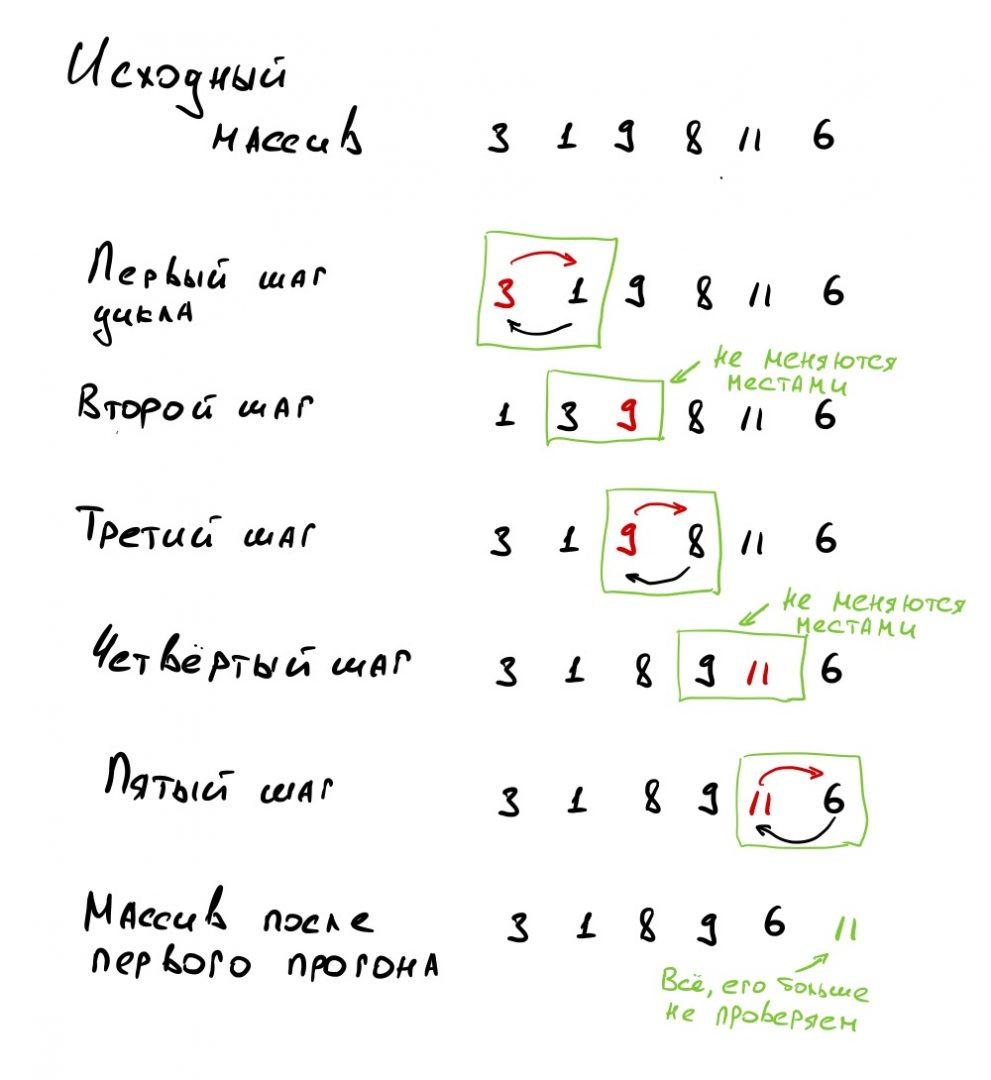 Исходный
массив 3 1 9 8 11 6
Первый шаг
цикла 3 1 9 8 11 6
не меняются
местами
Второй шаг 1 3 9 8 11 6
Третий шаг 3 1 9 8 11 6
не меняются
местами
Четвёртый шаг 3 1 8 9 11 6
Пятый шаг 3 1 8 9 11 6
Массив после
первого прогона 3 1 8 9 6 11
Всё, его больше
не проверяем